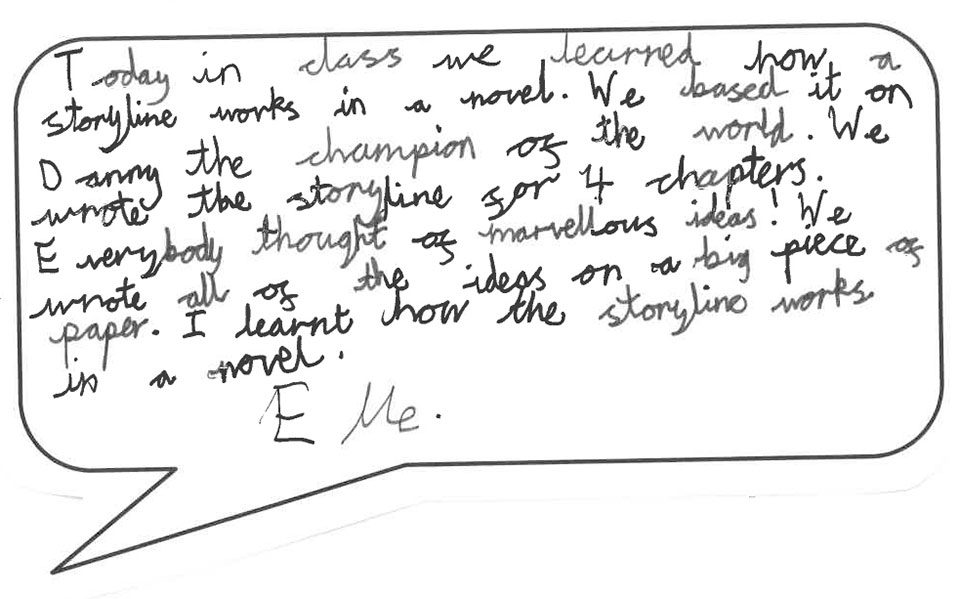 Today in class we learned how a
storyline works in a novel. We based it on
Danny the champion of the world. We
wrote the storyline for 4 chapters.
Everybody thought of marvellous ideas! We
wrote all of the ideas on a big piece of
paper. I learnt how the storyline works
in a novel.